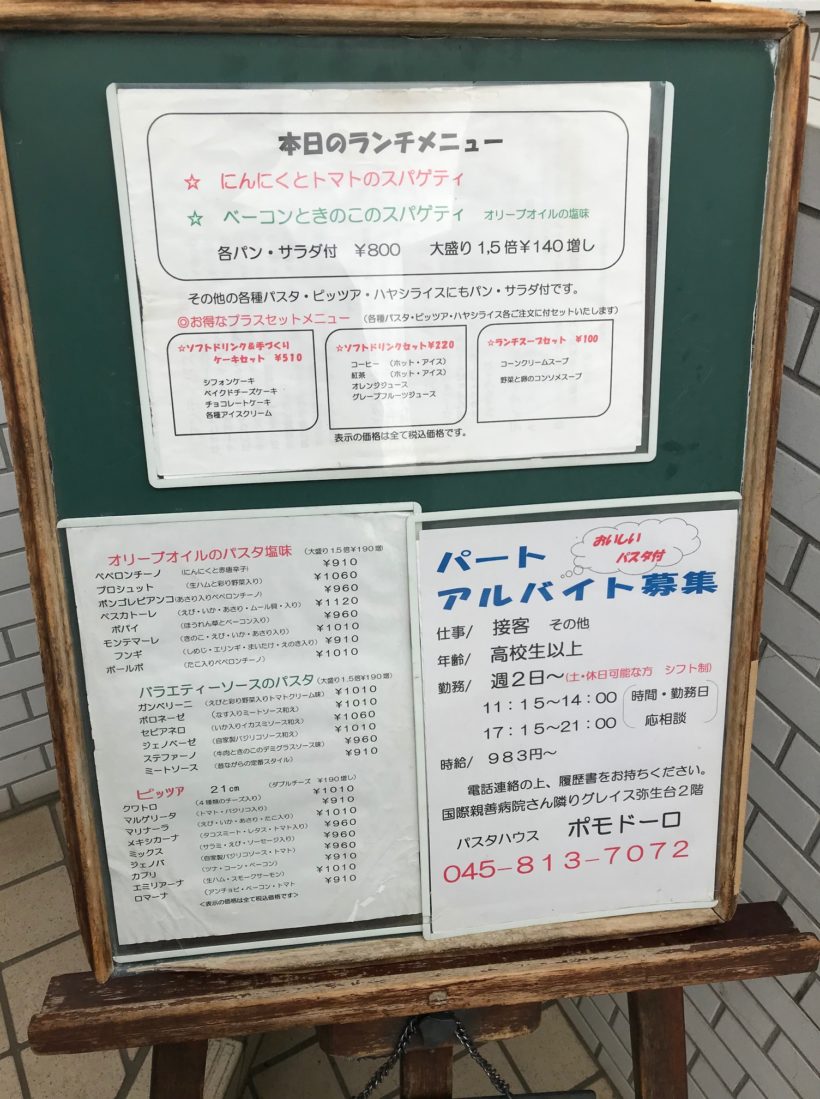 本日のランチメニュー
☆ にんにくとトマトのスパゲティ
☆ ベーコンときのこのスパゲティ オリーブオイルの塩味
各パン・サラダ付 ¥800 大盛り1,5倍¥140増し
その他の各種パスタ・ピッツア・ハヤシライスにもパン・サラダ付です。
◎お得なプラスセットメニュー (各種パスタ・ピッツア・ハヤシライス各ご注文に付セットいたします)
☆ソフトドリンク&手づくり
ケーキセット ¥510
シフォンケーキ
ベイクドチーズケーキ
チョコレートケーキ
各種アイスクリーム
☆ソフトドリンクセット¥220
コーヒー (ホット・アイス)
紅茶 (ホット・アイス)
オレンジジュース
グレープフルーツジュース
☆ランチスープセット ¥100
コーンクリームスープ
野菜と卵のコンソメスープ
表示の価格は全て税込価格です。
オリーブオイルのパスタ塩味 (大盛り1.5倍¥190増)
ペペロンチーノ (にんにくと赤唐辛子) ¥910
プロシュット (生ハムと彩り野菜入り) ¥1060
ボンゴレビアンコ(あさり入りペペロンチーノ) ¥960
ペスカトーレ (えび・いか・あさり・ムール貝・入り) ¥1120
ポパイ (ほうれん草とベーコン入り) ¥960
モンテマーレ (きのこ・えび・いか・あさり入り) ¥1010
フンギ (しめじ・エリンギ・まいたけ・えのき入り) ¥910
ポールポ (たこ入りペペロンチーノ) ¥1010
バラエティーソースのパスタ (大盛り1.5倍¥190増)
ガンベリーニ (えびと彩り野菜入りトマトクリーム味) ¥1010
ボロネーゼ (なす入りミートソース和え) ¥1010
セピアネロ (いか入りイカスミソース和え) ¥1060
ジェノベーゼ (自家製バジリコソース和え) ¥1010
ステファーノ (牛肉ときのこのデミグラスソース味) ¥960
ミートソース (昔ながらの定番スタイル) ¥910
ピッツア 21cm (ダブルチーズ ¥190増し)
クワトロ (4種類のチーズ入り) ¥1010
マルゲリータ (トマト・バジリコ入り) ¥910
マリナーラ (えび・いか・あさり・たこ入り) ¥1010
メキシカーナ (タコスミート・レタス・トマト入り) ¥960
ミックス (サラミ・えび・ソーセージ入り) ¥960
ジェノバ (自家製バジリコソース・トマト) ¥960
カプリ (ツナ・コーン・ベーコン) ¥910
エミリアーナ (生ハム・スモークサーモン) ¥1010
ロマーナ (アンチョビ・ベーコン・トマト ¥910
<表示の価格は全て税込価格です>
おいしい
パスタ付
パート
アルバイト募集
仕事/ 接客 その他
年齢/ 高校生以上
勤務/ 週2日～(土・休日可能な方 シフト制)
11:15～14:00 時間・勤務日
17:15～21:00 応相談
時給/ 983円～
電話連絡の上、履歴書をお持ちください。
国際親善病院さん隣りグレイス弥生台2階
パスタハウス ポモドーロ
045-813-7072